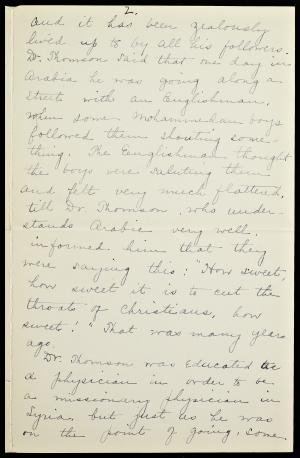 2.
and it has been zealously
lived up to by all his followers.
Dr. Thomson said that one day in
Arabia he was going along a
street with an Englishman,
when some Mohammedan boys
followed them shouting some-
thing. The Englishman thought
the boys were saluting them
and felt very much flattered,
till Dr. Thomson, who under-
stands Arabic very well,
informed him that they
were saying this: "How sweet,
how sweet it is to cut the
throats of Christians, how
sweet!" That was many years
ago.
Dr. Thomson was educated as
a physician in order to be
a missionary physician in
Syria, but just as he was
on the point of going, some